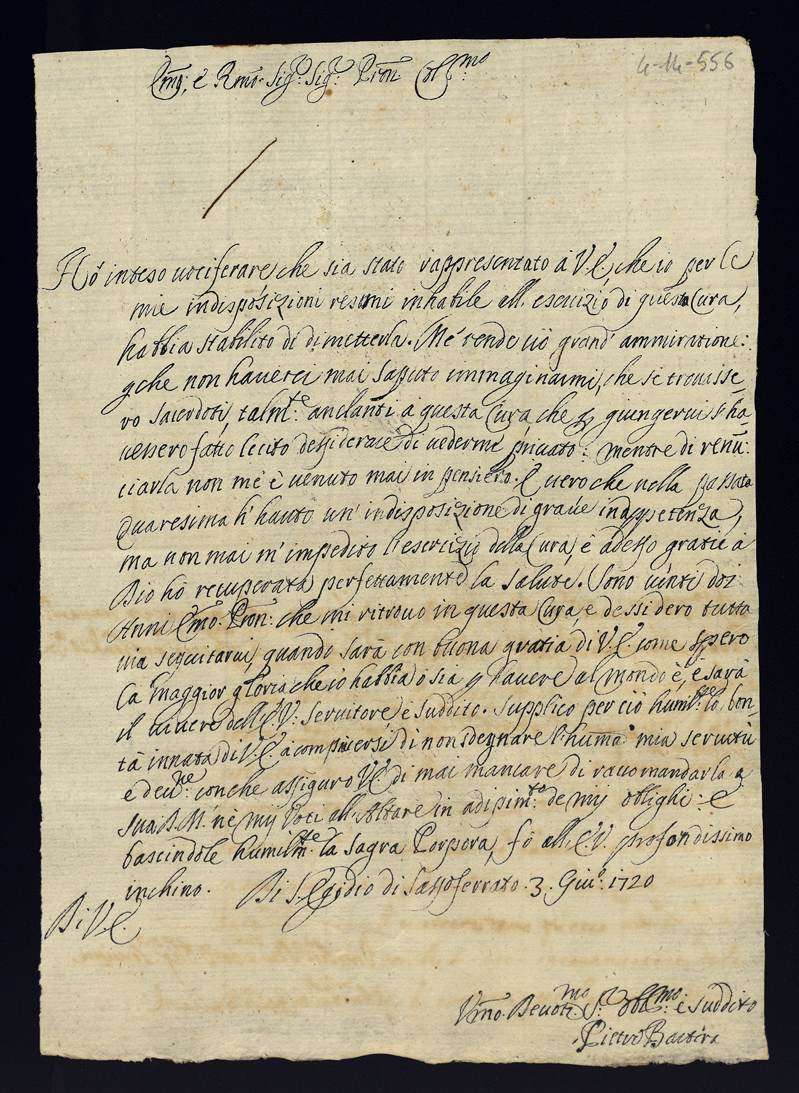 4-14-556
Emo: e Rmo: Sig.r Sig.r Pron: Col.mo
Hò inteso vociferare che sia stato rappresentato à V.E, che io per le
mie indisposizioni resomi inhabile all. esercizio di questa Cura,
habbia stabilito di dimetterla. Mè rende ciò grand' ammiratione:
che non haverei mai saputo immaginarmi, che si trovasse-
ro Sacerdoti talm.te anelanti a questa Cura, che giungervi s' ha-
vessero fatto lecito dessiderare di vedermi privato: mentre di renũ:
ciarla non mè è venuto mai in pensiero. È vero che nella passata
Quaresima h' hauto un' indisposizione di grave inappetenza,
ma non mai m' impedito l'esercizio della Cura, è adesso gratie à
Dio hò recuperata perfettamente la salute. Sono vinti doi
Anni Emo: Pron: che mi ritrovo in questa Cura, e dessidero tutta
via seguitarvi, quando sarà con buona gratia di V.E. come spero
La maggior gloria che io habbia ò sia p havere al mondo è, è sarà
il vivere dell' E.V. servitore è suddito. Supplico per ciò humil.te la bon-
tà innata di V.E. à compiacersi di non sdegnare l' huma mia servitù
e con che assiguro V.E. di mai mancare di racomandarla a
Sua D.M. nè mij voti all. Altare in adipim.to de mij oblighi: e
bascindole humilm.te la sagra Porpora, fò all. E.V. profondissimo
inchino. Di S. Egidio di Sassoferrato. 3. Giu.o 1720
Di V.E.
Vmo. Devoti.mo S.r obl.mo: è suddito
Pietro